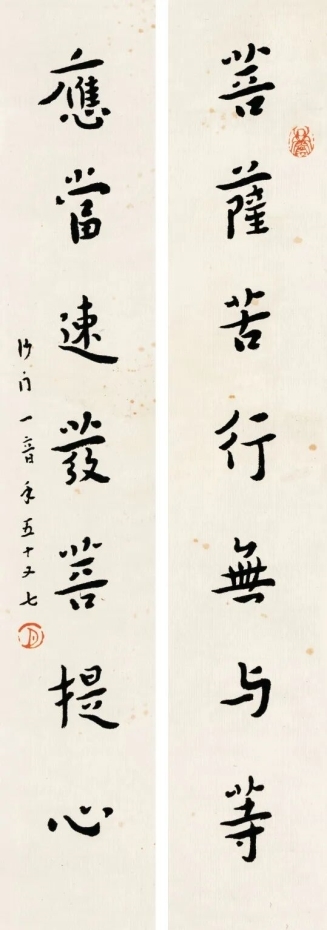 菩薩苦行無与等
應當速發菩提心
沙門一音年五十又七